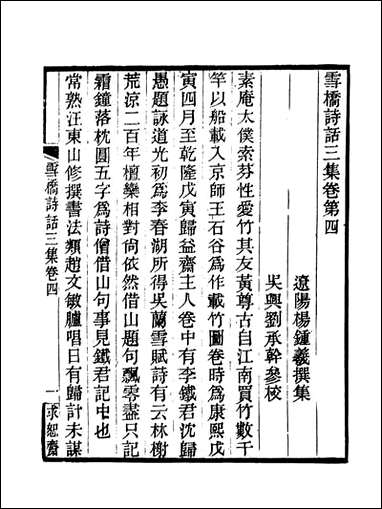 雪橋詩話三集卷第四
遼陽楊鍾羲撰集
吳興劉承幹參校
素庵太僕索芬性愛竹其友黃尊古自江南買竹數千
竿以船載入京師王石谷爲作載竹圖卷時爲康熙戊
寅四月至乾隆戊寅歸益齋主人卷中有李鐵君沈歸
愚題詠道光初爲李春湖所得吳蘭雪賦詩有云林樹
荒涼二百年檀欒相對尙依然借山題句飄零盡只記
霜鐘落枕圓五字爲詩僧借山句事見鐵君記中也
常熟汪東山修撰書法類趙文敏臚唱日有歸計未謀
雪橋詩話三集卷四
一
求恕齋